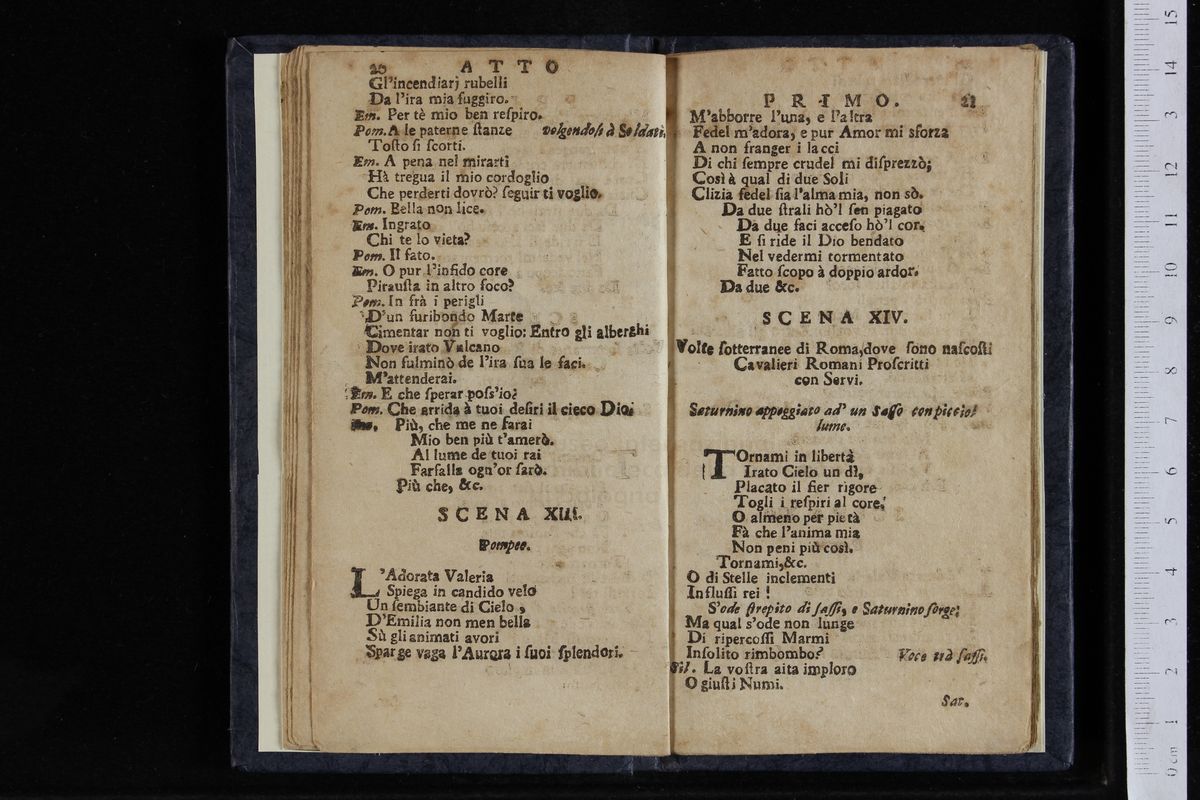 20 ATTO
Gl'incendiarj rubelli
Da l'ira mia fuggiro.
Em. Per tè mio ben reſpiro.
Pom. A le paterne ſtanze volgendoſi à Soldati.
Toſto ſi ſcorti.
Em. A pena nel mirarti
Hà tregua il mio cordoglio
Che perderti dovrò? ſeguir ti voglio.
Pom. Bella non lice.
Em. Ingrato
Chi te lo vieta?
Pom. Il fato.
Em. O pur l'infido core
Pirauſta in altro foco?
Pom. In frà i perigli
D'un furibondo Marte
Cimentar non ti voglio: Entro gli alberghi
Dove irato Vulcano
Non fulminò de l'ira ſua le faci.
M'attenderai.
Em. E che ſperar poſs'io?
Pom. Che arrida à tuoi deſiri il cieco Dio;
Più, che me ne ſarai
Mio ben più t'amerò.
Al lume de tuoi rai
Farfalla ogn'or ſarò.
Più che, &c.
SCENA XIII.
Pompeo.
L'Adorata Valeria
Spiega in candido velo
Un ſembiante di Cielo,
D'Emilia non men bella
Sù gli animati avori
Sparge vaga l'Aurora i ſuoi ſplendori.
PRIMO. 21
M'abborre l'una, e l'altra
Fedel m'adora, e pur Amor mi sforza
A non franger i lacci
Di chi ſempre crudel mi diſprezzò;
Così à qual di due Soli
Clizia fedel ſia l'alma mia, non sò.
Da due ſtrali hò'l ſen piagato
Da due faci acceſo hò'l cor.
E ſi ride il Dio bendato
Nel vedermi tormentato
Fatto ſcopo à doppio ardor.
Da due &c.
SCENA XIV.
Volte ſotterranee di Roma, dove ſono naſcoſti
Cavalieri Romani Proſcritti
con Servi.
Saturnino appoggiato ad' un Saſſo con picciol
lume.
TOrnami in libertà
Irato Cielo un dì,
Placato il fier rigore
Togli i reſpiri al core;
O almeno per pietà
Fà che l'anima mia
Non peni più così.
Tornami, &c.
O di Stelle inclementi
Influſſi rei!
S'ode ſtrepito di ſaſſi, e Saturnino ſorge;
Ma qual s'ode non lunge
Di ripercoſſi Marmi
Inſolito rimbombo? Voce trà ſaſſi.
Sil. La voſtra aita imploro
O giuſti Numi.
Sat.